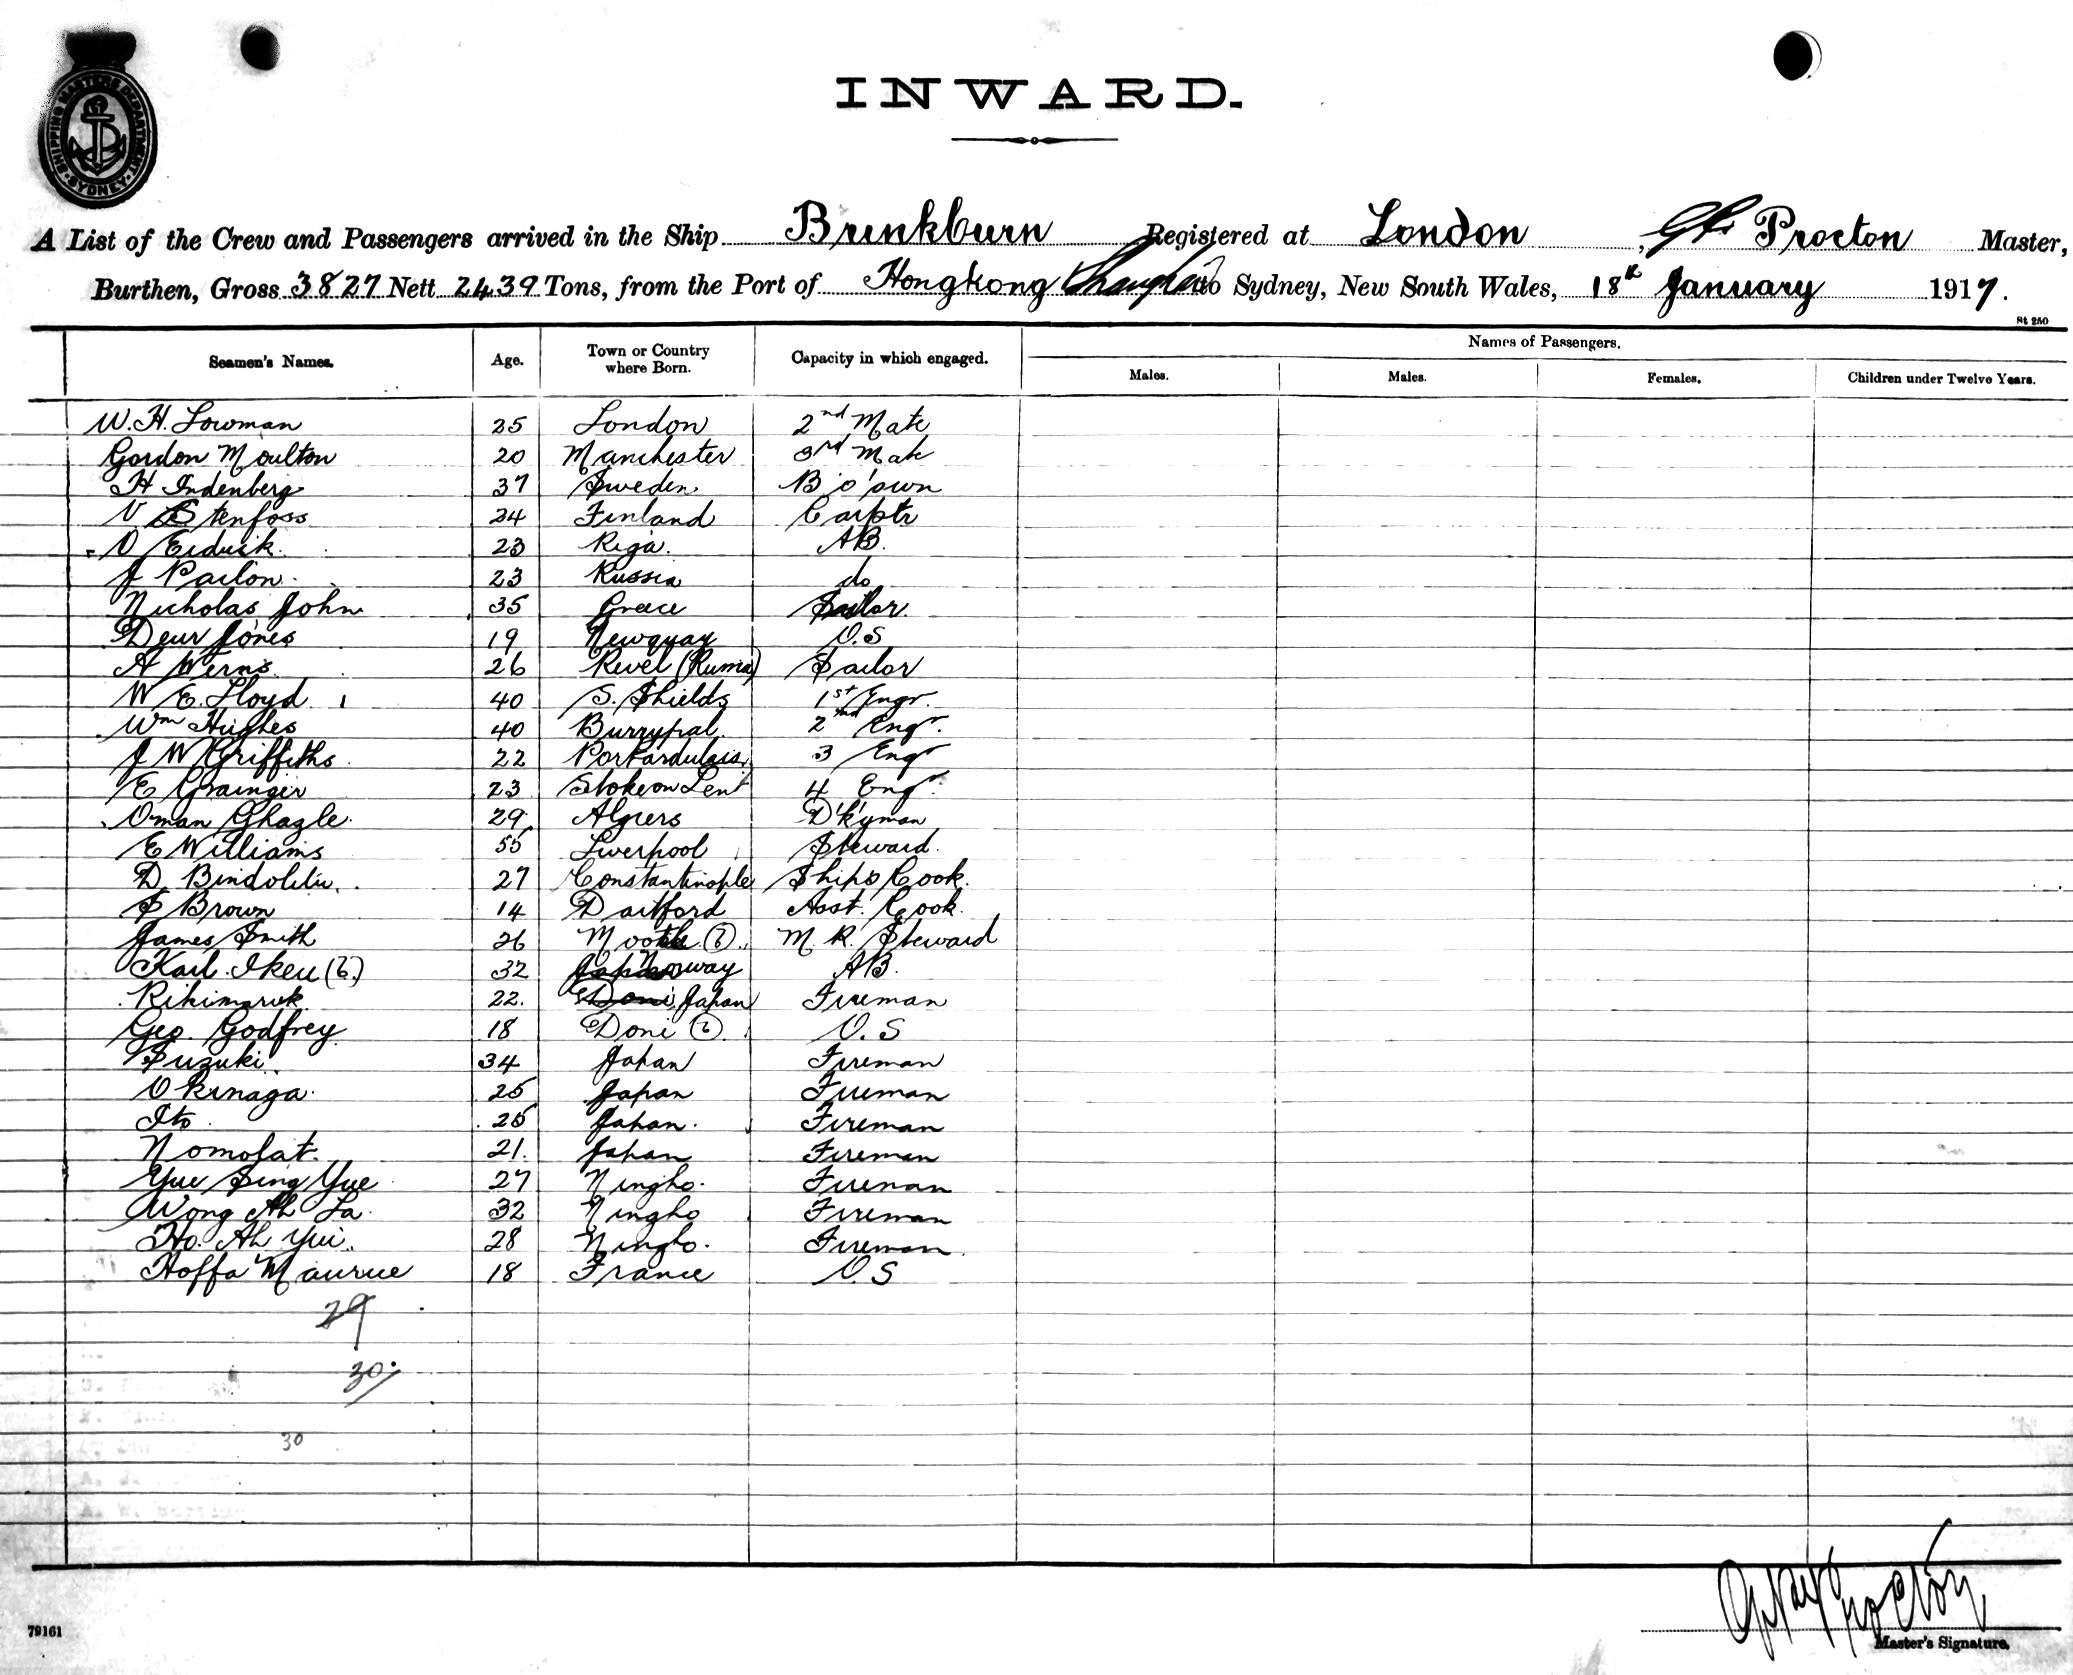 SHIPPING MASTERS DEPARTMENT SYDNEY
INWARD.
A List of the Crew and Passengers arrived in the Ship Brinkburn Registered at London, Procton Master,
Burthen, Gross 3827 Nett 2439 Tons, from the Port of Hongkong Shanghai to Sydney, New South Wales, 18th January 1917.
St 250
Seamen's Names. Age. Town or Country where Born. Capacity in which engaged. Names of Passengers.
Males. Males. Females. Children under Twelve Years.
W. H. Lowman 25 London 2nd Mate
Gordon Moulton 20 Manchester 3rd Mate
H Indenberg 37 Sweden B'o'swn
V Stenfoss 24 Finland Carptr
O Eiduik 23 Riga. AB.
J Pailon 23 Russia do
Nicholas John 35 Greece Sailor.
Deur Jones 19 Newquay O.S
A Werns 26 Revel Sailor
W E. Lloyd 40 S. Shields 1st Engr.
Wm Hughes 40 Burrypal 2nd Engr.
J W Griffiths 22 Pontardulais 3 Engr
E Grainger 23 Stoke on Tent 4 Engr.
Oman Ghazle 29 Algiers D'k'yman
E Williams 55 Liverpool Steward.
D 27 Constantinople Ships Cook.
S Brown 14 Dartford Asst. Cook.
James Smith 26 (?) M. R. Steward
Karl Ikeu (?) 32 Norway AB.
Rikimaruk 22. Doni Japan Fireman
Geo. Godfrey 18 Doni (?) O.S
Suzuki 34 Japan Fireman
Okinaga 25 Japan Fireman
Ito 25 Japan. Fireman
Nomolat. 21. Japan Fireman
Yue Sing Yue 27 Ningho. Fireman
Wong Ah La 32 Ningho Fireman
Ho. Ah Yui. 28 Ningho. Fireman.
Hoffa Maurice 18 France O.S
29
30
30
Procton
Master's Signature.
79161